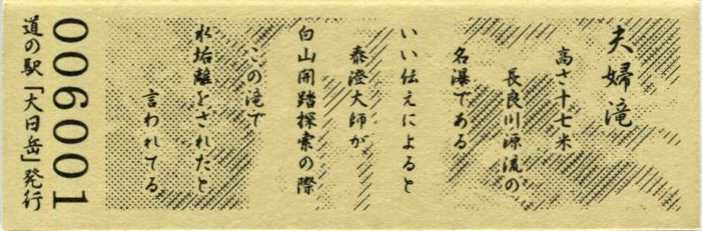 夫婦滝
高さ十七米
長良川源流の
名瀑である
いい伝えによると
泰澄大師が
白山開踏探索の際
この滝で
水垢離をされたと
言われてる
006001
道の駅「大日岳」発行